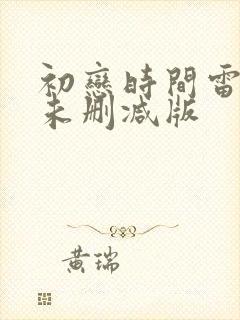 初戀時間雷
未删减版
黄瑞